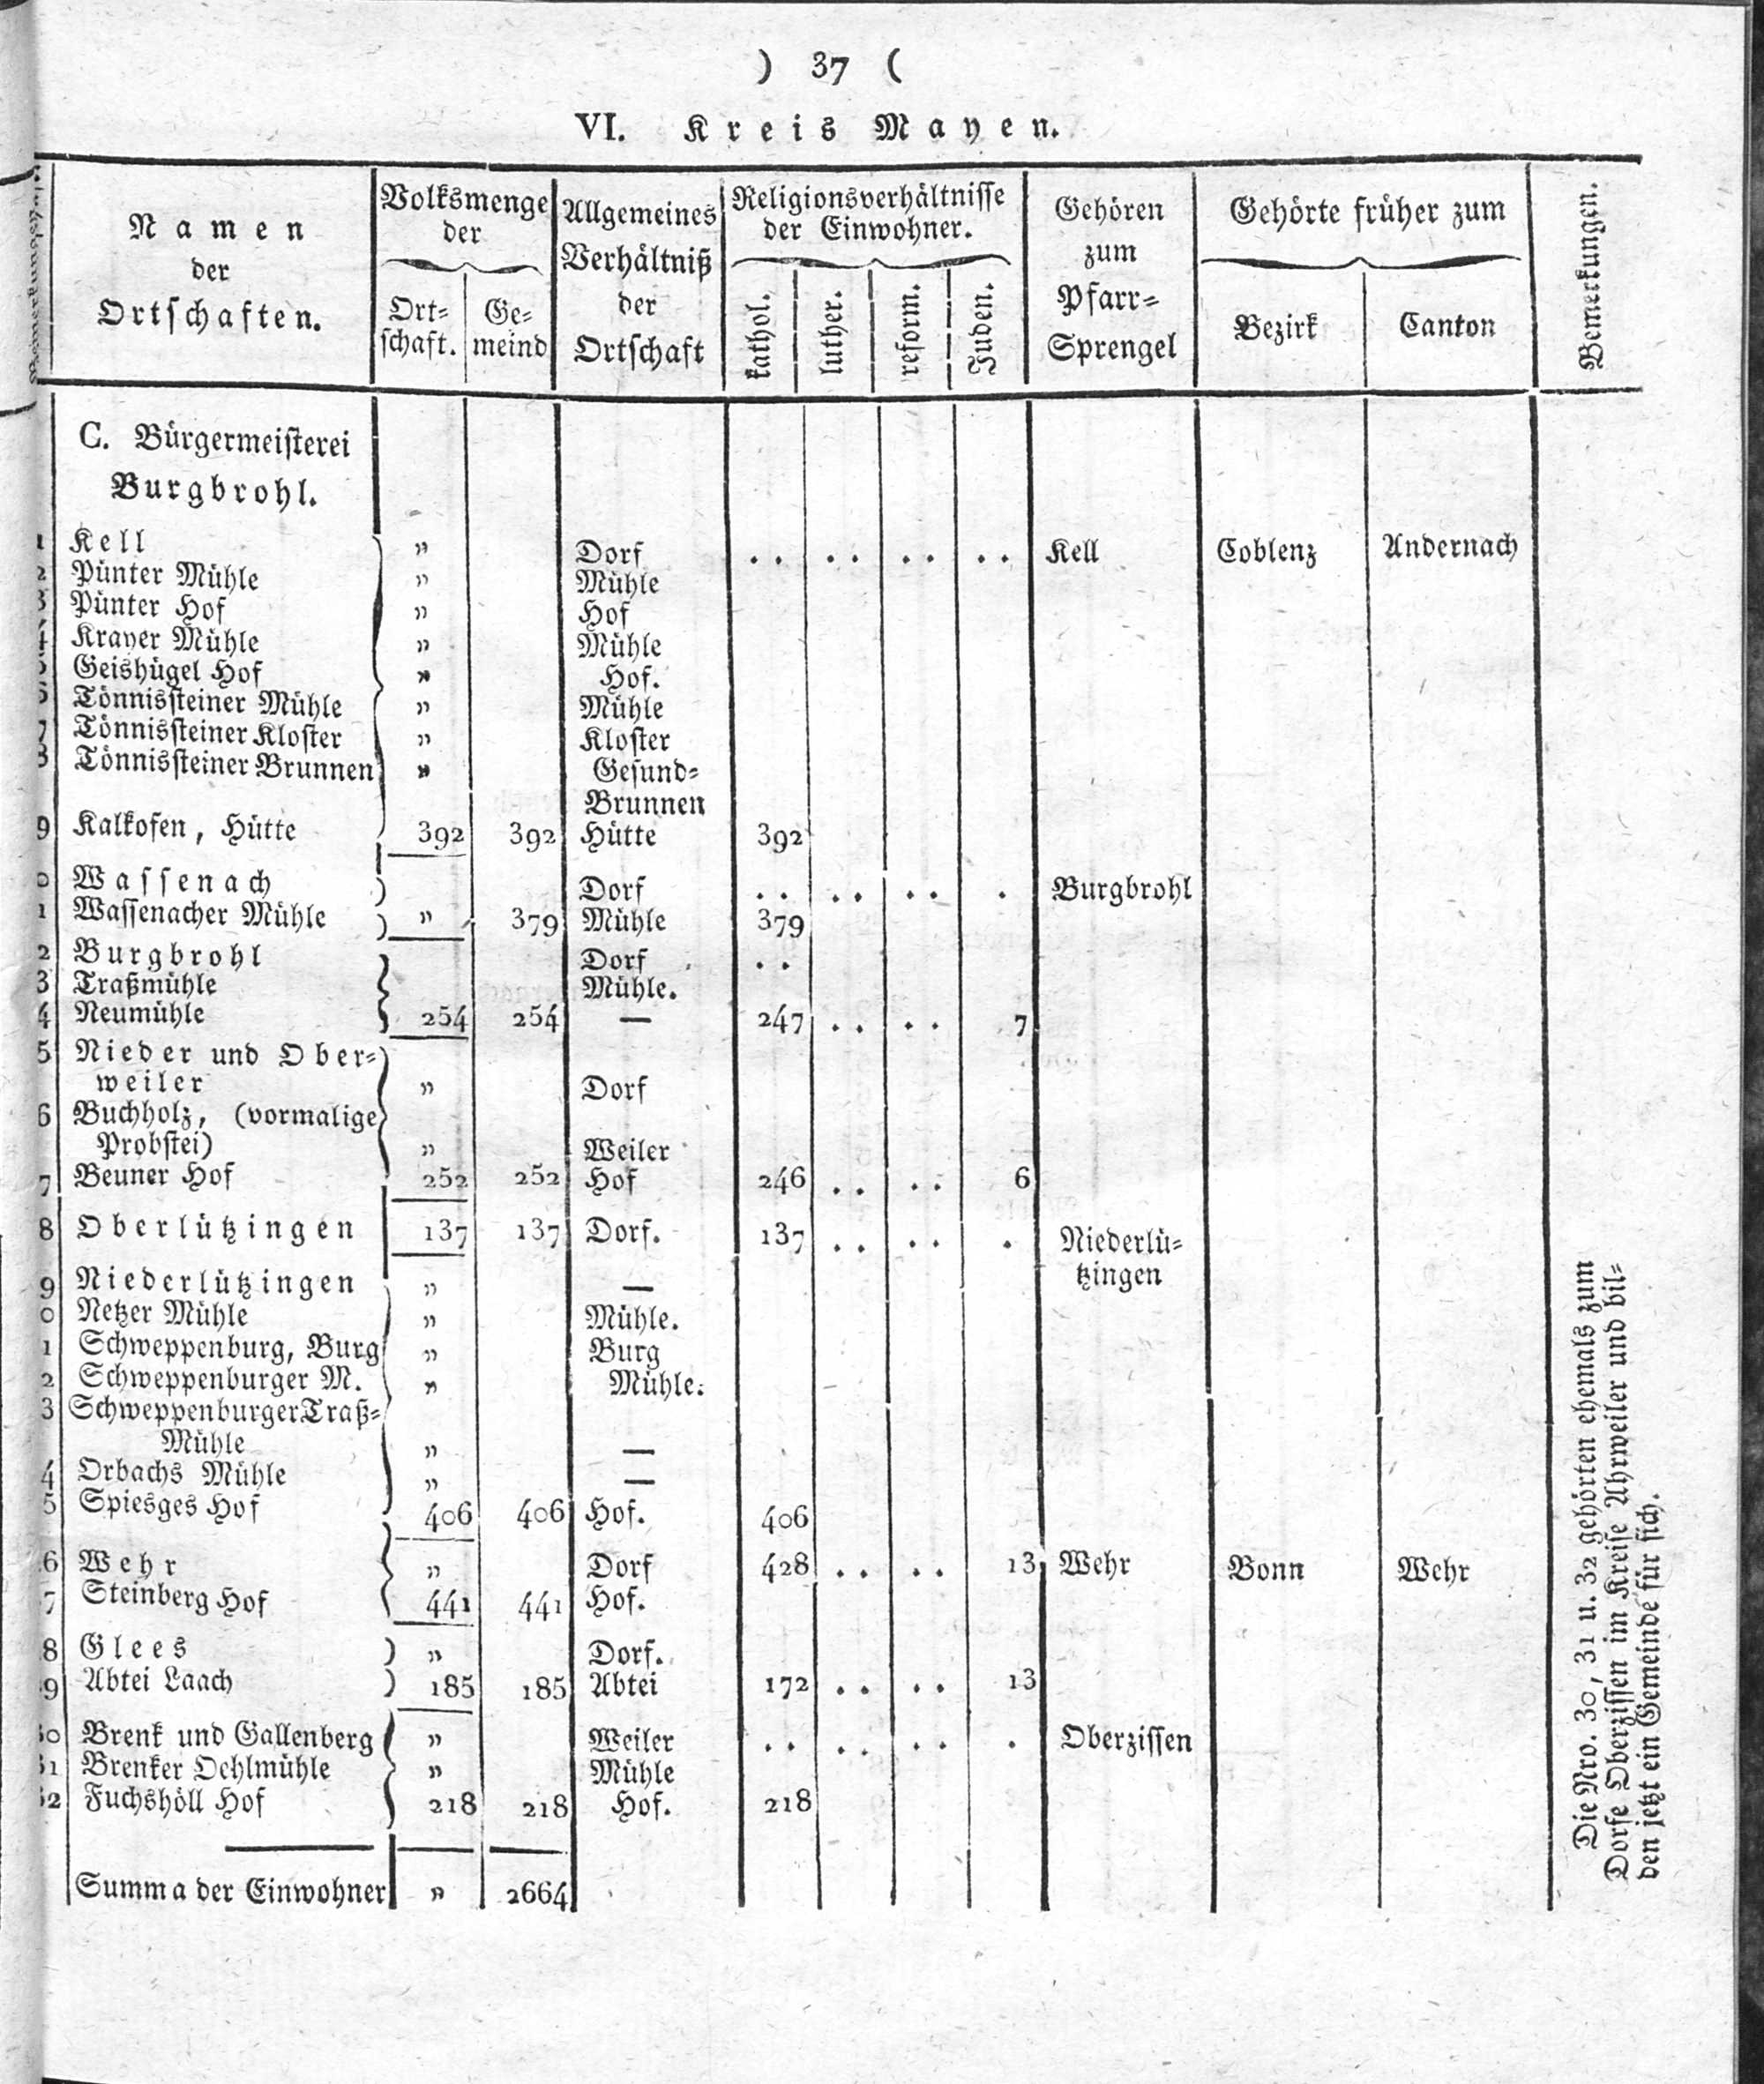 ) 37 (
VI. Kreis Mayen.
Namen der Ortschaften. | Volksmenge der Ort=schaft. | Ge=meind | Allgemeines Verhältniß der Ortschaft | Religionsverhältnisse der Einwohner. kathol. | luther. | reform. | Juden. | Gehören zum Pfarr=Sprengel | Gehörte früher zum Bezirk | Canton | Bemerkungen.
C. Bürgermeisterei
Burgbrohl.
1 Kell „ Dorf . . . . . . . . Kell Coblenz Andernach
2 Pünter Mühle „ Mühle
3 Pünter Hof „ Hof
4 Krayer Mühle „ Mühle
Geishügel Hof „ Hof.
6 Tönnissteiner Mühle „ Mühle
7 Tönnissteiner Kloster „ Kloster
8 Tönnissteiner Brunnen „ Gesund=
Brunnen
9 Kalkofen, Hütte 392 392 Hütte 392
0 Wassenach Dorf . . . . . . . Burgbrohl
1 Wassenacher Mühle „ 379 Mühle 379
2 Burgbrohl Dorf . .
3 Traßmühle Mühle.
4 Neumühle 254 254 — 247 . . . . 7
5 Nieder und Ober=
weiler „ Dorf
6 Buchholz, (vormalige
Probstei) „ Weiler
7 Beuner Hof 252 252 Hof 246 . . . . 6
8 Oberlützingen 137 137 Dorf. 137 . . . . . Niederlü=
tzingen
9 Niederlützingen „ —
0 Netzer Mühle „ Mühle.
1 Schweppenburg, Burg „ Burg
2 Schweppenburger M. „ Mühle.
3 Schweppenburger Traß=
Mühle „ —
4 Orbachs Mühle „ —
5 Spiesges Hof 406 406 Hof. 406
6 Wehr „ Dorf 428 . . . . 13 Wehr Bonn Wehr
7 Steinberg Hof 441 441 Hof.
8 Glees „ Dorf.
9 Abtei Laach 185 185 Abtei 172 . . . . 13
30 Brenk und Gallenberg „ Weiler . . . . . . . Oberzissen
31 Brenker Oehlmühle „ Mühle
32 Fuchshöll Hof 218 218 Hof. 218
Summa der Einwohner „ 2664
Die Nro. 30, 31 u. 32 gehörten ehemals zum
Dorfe Oberzissen im Kreise Ahrweiler und bil=
den jetzt ein Gemeinde für sich.